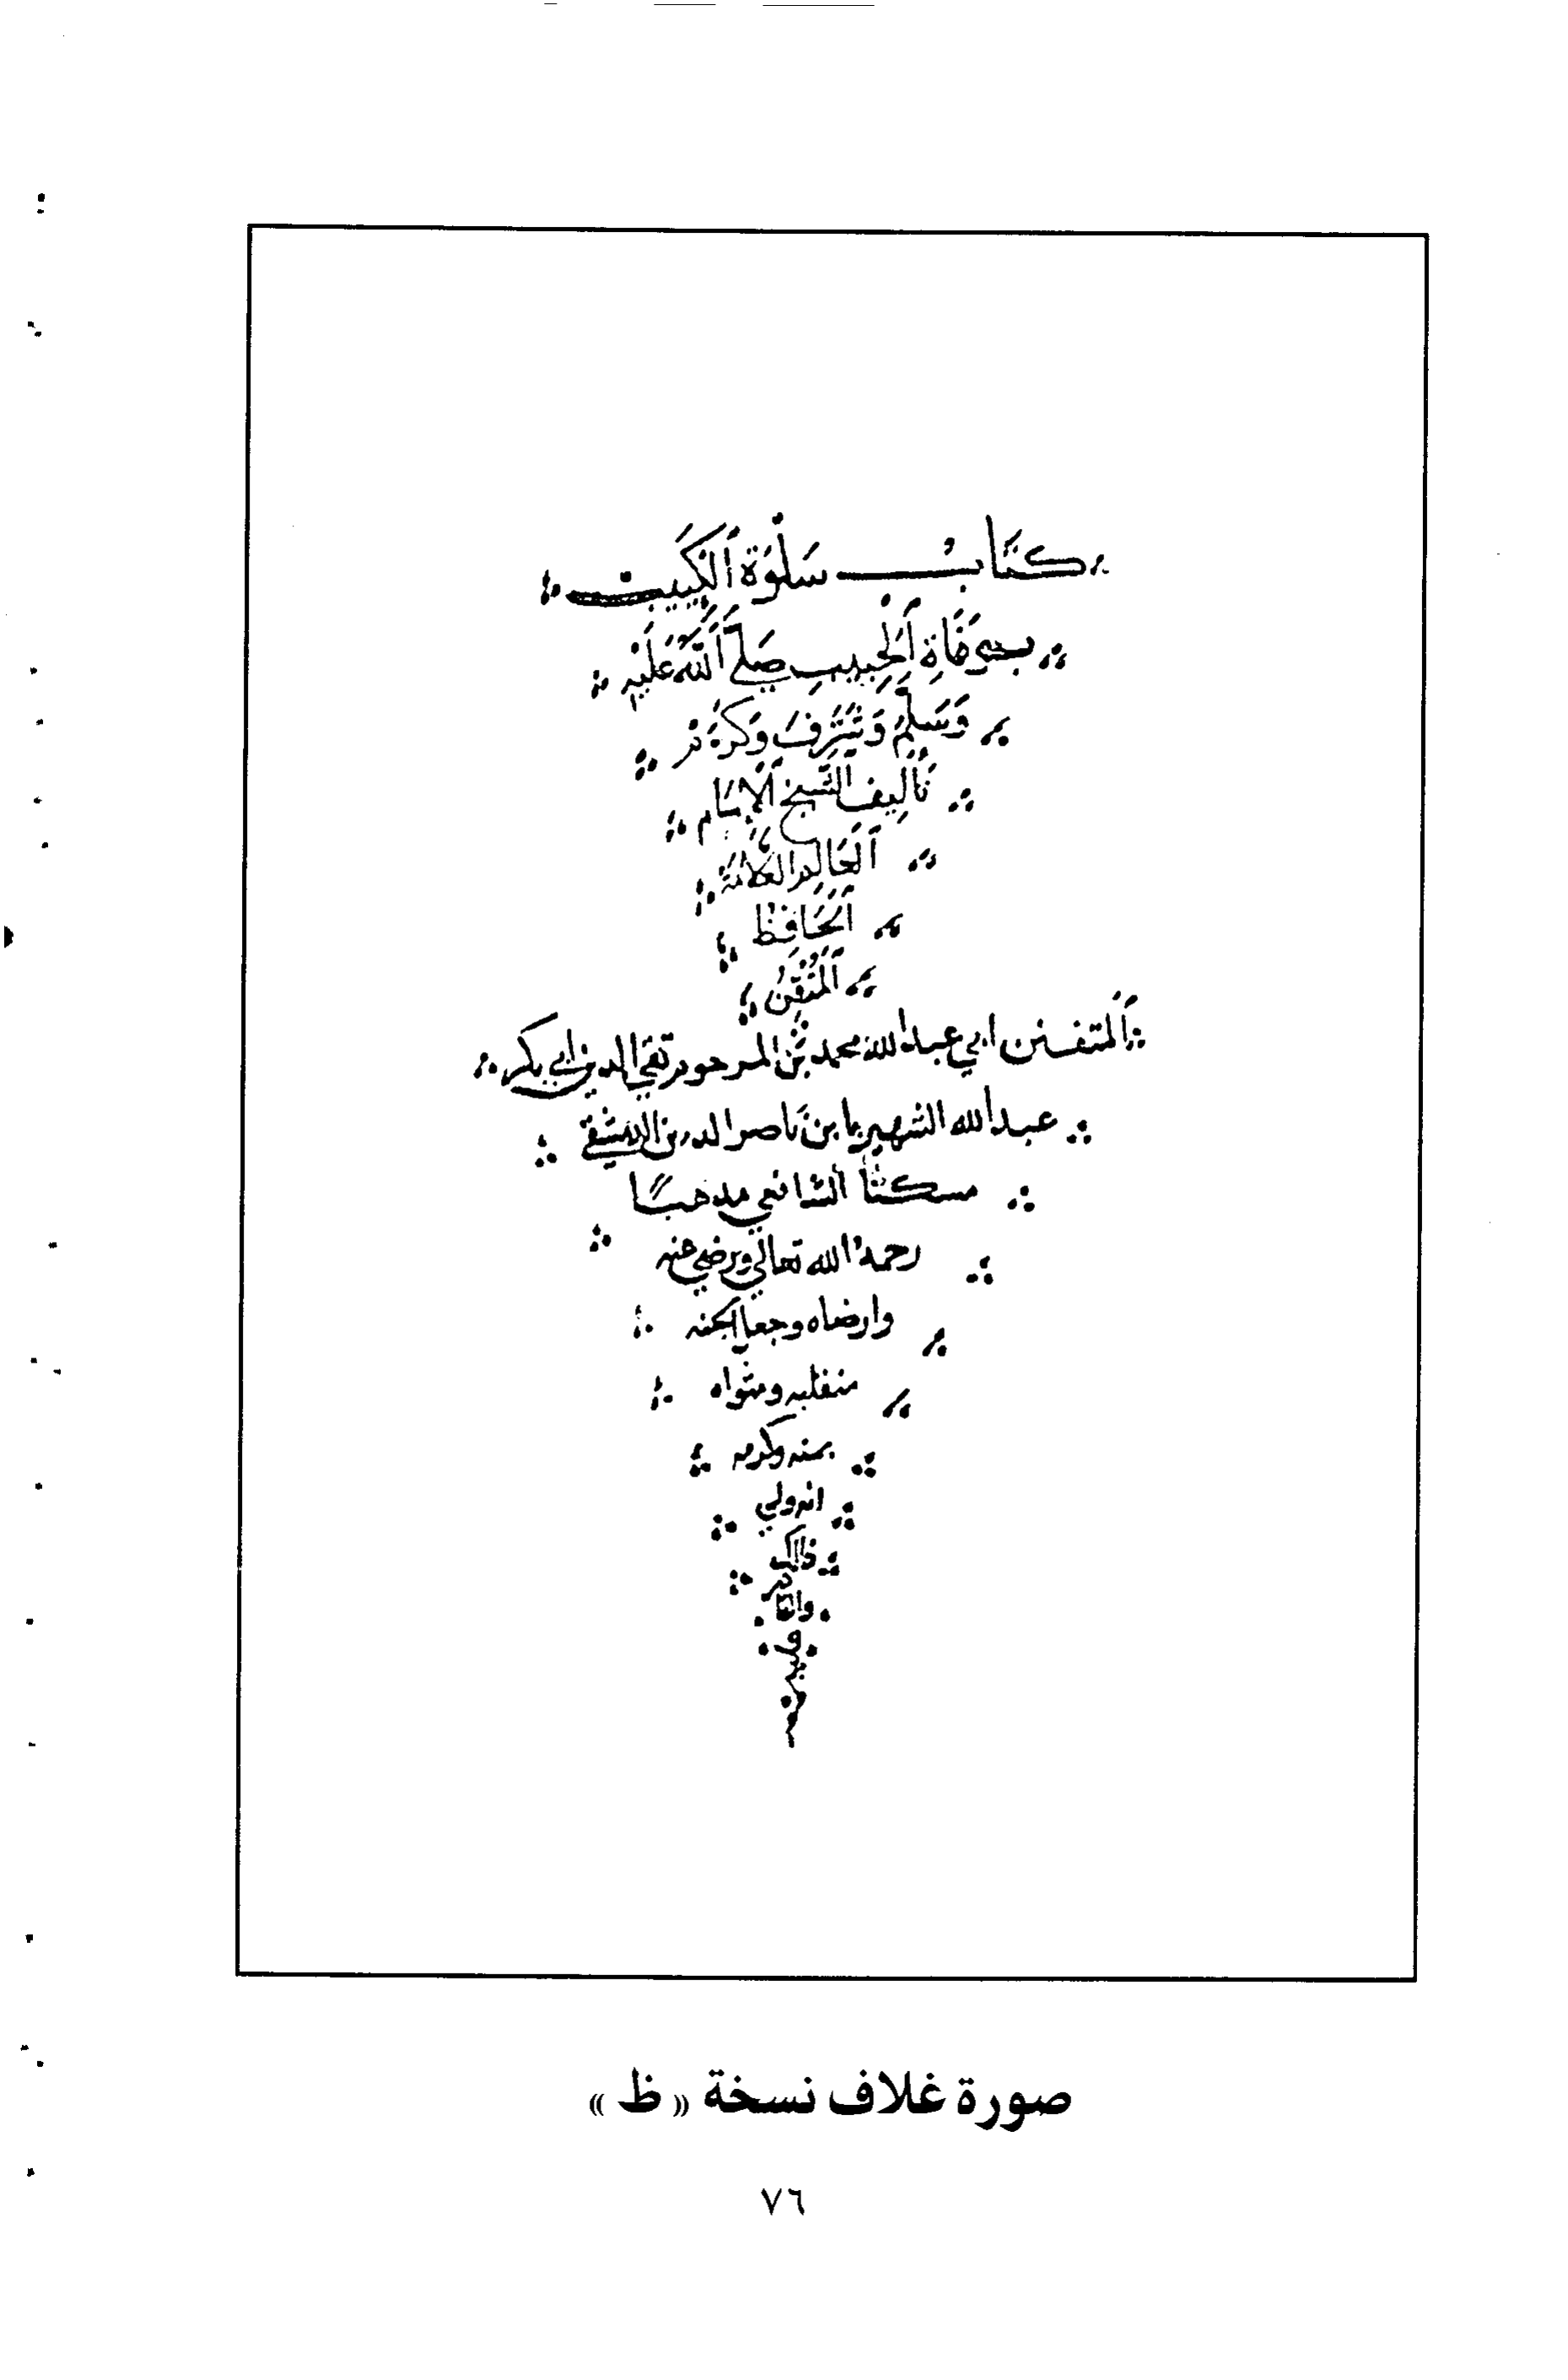 كتَابُ سَلْوَة اَلكَئيبْ
بوفَاةِ اَلحَبِيبِ صَلَّى اَللَّهُ عَلَيْه
وَسَلَّمَ وَشَرَّفَ وَكرَّم
تَأَلِيف الشَّيخ اَلاِمَام
اَلعَالِم العَلاَّمَة
اَلحَافِظ
اَلمُتْقِنُ
اَلمتفنن ابي عبد الله محمد بْن المرحوم تقي الدين ابي بكر
عبد الله الشهير بابن نَاصر الدين الدمشقي
مسكنًا الشافعي مذهبًا
رحمه الله تعالي ورضي عنه
وارضاه وجعل الجنه
منقلبه ومثواه
بمنه وكرمه
انه ولي
ذلك
والقادر
عليه
صورة غلاف نسخة « ظ »
٧٦